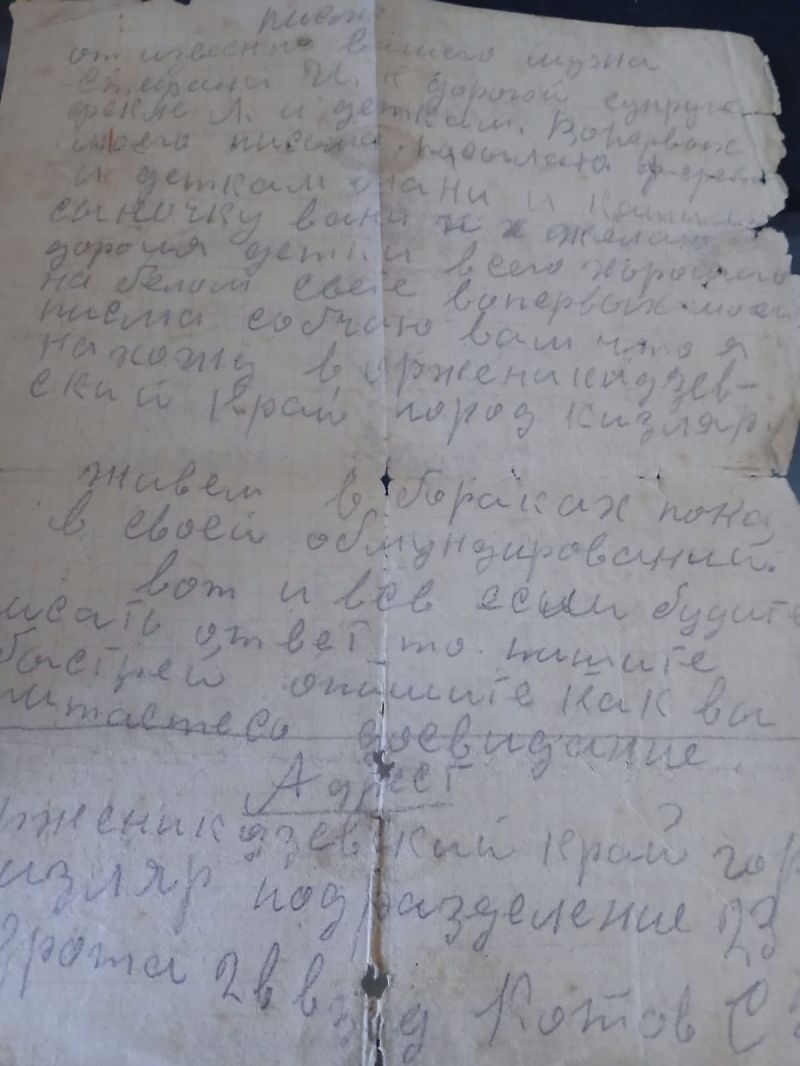 письмо
от извесного вашего мужа
степана И. к дорогой супруге
фекле Л. и деткам. Вопервых
моего письма посылаю
и деткам мани и кати и
сыночку вани и желаю
дорогия детки всего хорошего
на белом свете вопервых моего
писма собчаю вам что я
нахожу в орженикидзев-
ский край город кизляр.
живем в бараках пока
в своей обмундировании.
вот и всё если будите
исать ответ то пишите
быстрей опишите как вы
питаетесь досвидание.
Адрест
рженикидзевский край гор
изляр подразделение 23
2 рота 2 в взвод Котов С